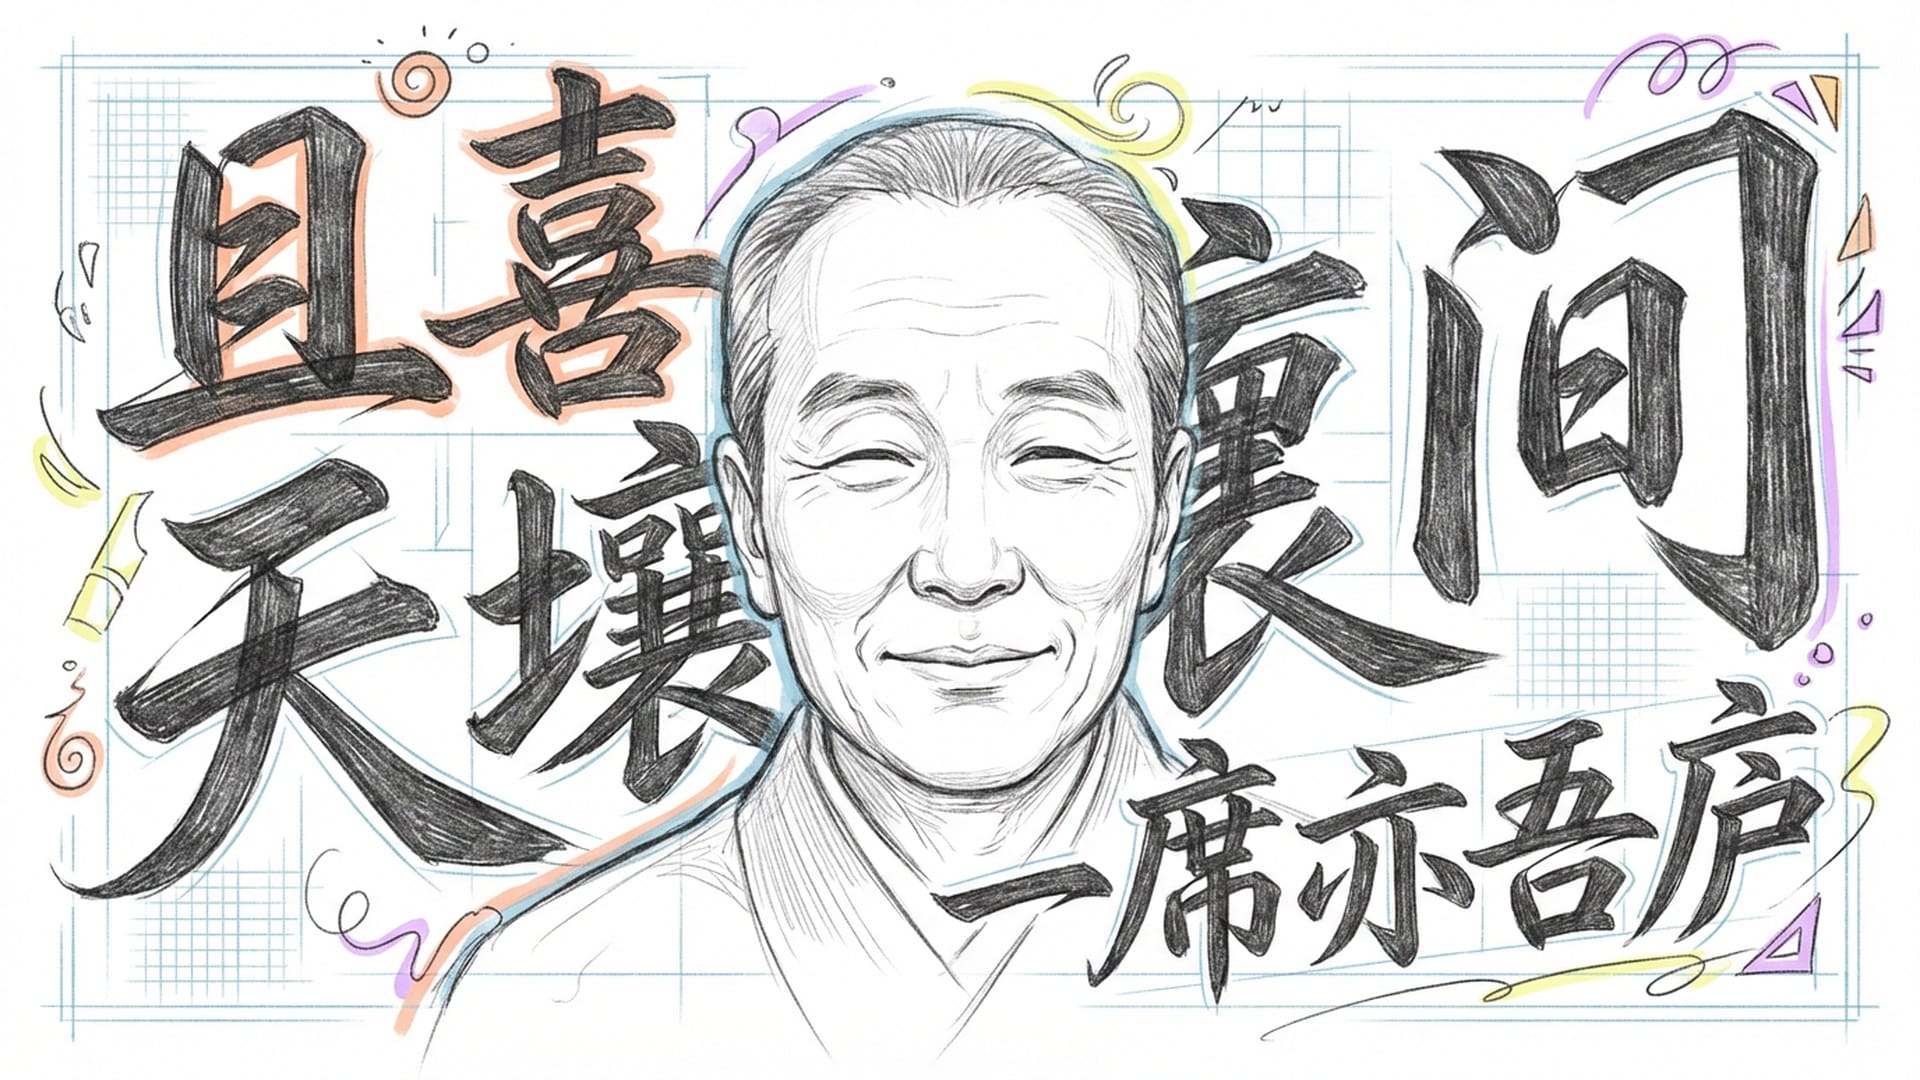 且喜
天壤
裏间
一席亦吾庐